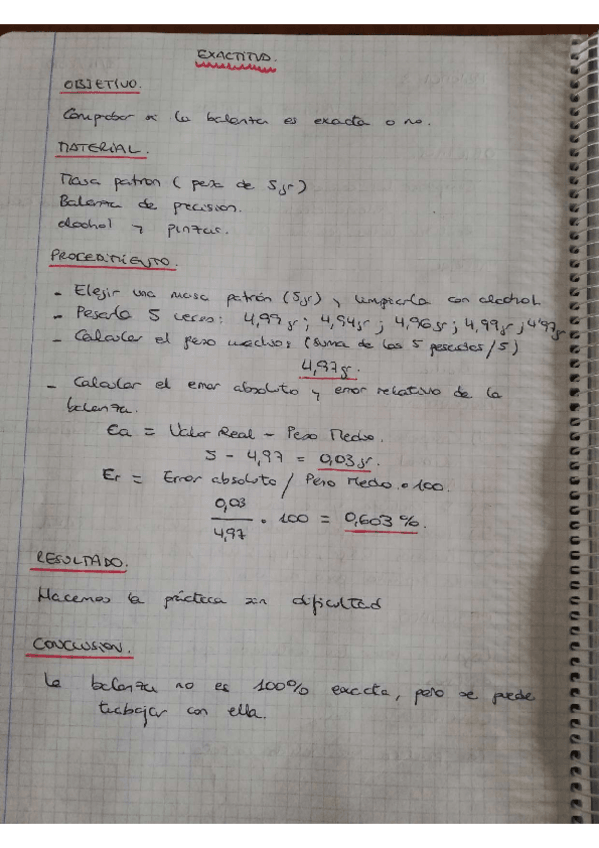 EXACTITUD.
OBJETIVO.
Comprobar si la balanza es exacta o no.
MATERIAL.
Masa patrón ( pesa de 5gr)
Balanza de precisión.
alcohol y pinzas.
PROCEDIMIENTO.
- Elejir una masa patrón (5gr) y limpiarla con alcohol.
- Pesarla 5 veces: 4,99 gr; 4,94gr; 4,96gr; 4,99gr; 4'97gr
- Calcular el peso medio: (suma de los 5 pesadas / 5)
4,97gr.
- Calcular el error absoluto y error relativo de la
balanza.
Ea = Valor Real - Peso Medio.
5 - 4,97 = 0,03gr.
Er = Error absoluto / Peso Medio • 100.
0,03
4,97
• 100 = 0,603%.
RESULTADO.
Hacemos la práctica sin dificultad
CONCLUSION.
La balanza no es 100% exacta, pero se puede
trabajar con ella.